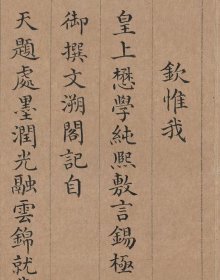 欽惟我
皇上懋學純熙敷言錫極
御撰文溯閣記自
天題處墨潤光融雲錦就